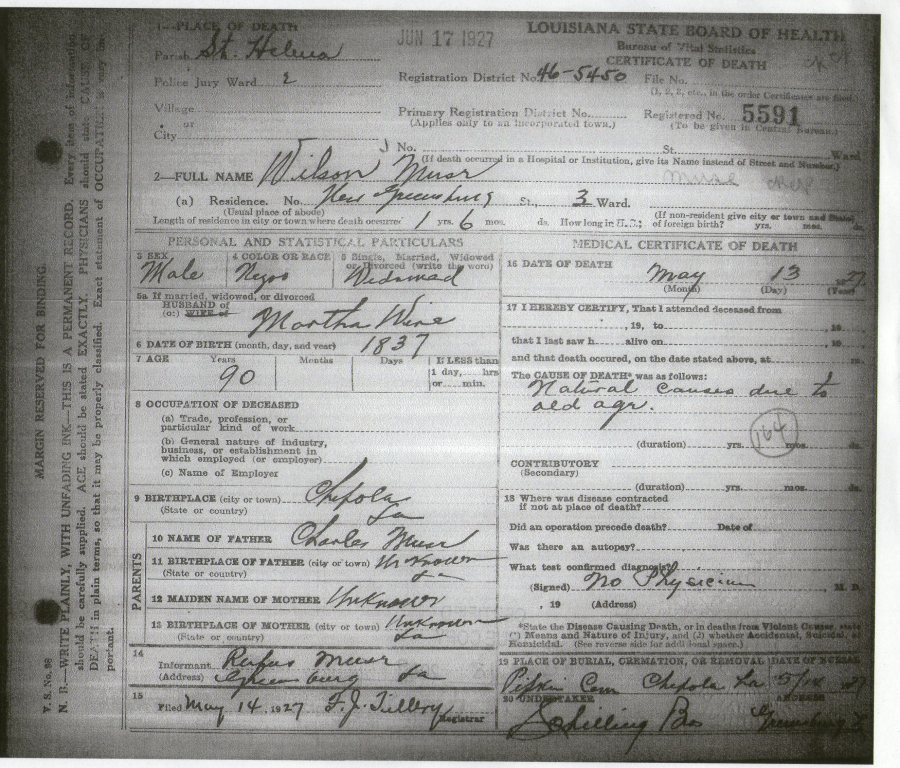 1—PLACE OF DEATH
Parish St. Helena
Police Jury Ward 2
Village
or
City
JUN 17 1927
LOUISIANA STATE BOARD OF HEALTH
Bureau of Vital Statistics
CERTIFICATE OF DEATH
Registration District No. 46-5450 File No.
(1, 2, 3, etc., in the order Certificates are filed)
Primary Registration District No. Registered No. 5591
(Applies only to an incorporated town.) (To be given in Central Bureau.)
No. St. Ward
(If death occurred in a Hospital or Institution, give its Name instead of Street and Number.)
2—FULL NAME Wilson Muse
(a) Residence. No. Near Greensburg St., 3 Ward.
(Usual place of abode) (If non-resident give city or town and State)
Length of residence in city or town where death occurred 1 yrs. 6 mos. ds. How long in U.S.; of foreign birth? yrs. mos. ds.
PERSONAL AND STATISTICAL PARTICULARS
3 SEX 4 COLOR OR RACE 5 Single, Married, Widowed
or Divorced (write the word)
Male Negro Widowed
5a If married, widowed, or divorced
HUSBAND of
(or) WIFE of
Martha Wine
6 DATE OF BIRTH (month, day, and year) 1837
7 AGE Years Months Days If LESS than
1 day, hrs
or min.
90
8 OCCUPATION OF DECEASED
(a) Trade, profession, or
particular kind of work
(b) General nature of industry,
business, or establishment in
which employed (or employer)
(c) Name of Employer
9 BIRTHPLACE (city or town) Chipola
(State or country) La
PARENTS
10 NAME OF FATHER Charles Muse
11 BIRTHPLACE OF FATHER (city or town) Unknown
(State or country) La
12 MAIDEN NAME OF MOTHER Unknown
13 BIRTHPLACE OF MOTHER (city or town) Unknown
(State or country) La
14
Informant Rufus Muse
(Address) Greensburg La
15
Filed May 14, 1927 F. J. Tillery
Registrar
MEDICAL CERTIFICATE OF DEATH
16 DATE OF DEATH May 13
(Month) (Day) (Year)
17 I HEREBY CERTIFY, That I attended deceased from
, 19 , to , 19
that I last saw h alive on , 19
and that death occured, on the date stated above, at m.
The CAUSE OF DEATH* was as follows:
Natural causes due to
old age.
164
(duration) yrs. mos. ds.
CONTRIBUTORY
(Secondary)
(duration) yrs. mos. ds.
18 Where was disease contracted
if not at place of death?
Did an operation precede death? Date of
Was there an autopsy?
What test confirmed diagnosis?
(Signed) No Physician M. D.
, 19 (Address)
*State the Disease Causing Death, or in deaths from Violent Causes, state
(1) Means and Nature of Injury, and (2) whether Accidental, Suicidal, or
Homicidal. (See reverse side for additional space.)
19 PLACE OF BURIAL, CREMATION, OR REMOVAL DATE OF BURIAL
Pipkin Cem Chipola La
20 UNDERTAKER ADDRESS
Schilling Bros Greensburg
MARGIN RESERVED FOR BINDING.
V. S. No. 98
N. B.—WRITE PLAINLY, WITH UNFADING INK—THIS IS A PERMANENT RECORD. Every item of information
should be carefully supplied. AGE should be stated EXACTLY. PHYSICIANS should state CAUSE OF
DEATH in plain terms, so that it may be properly classified. Exact statement of OCCUPATION is very im-
portant.